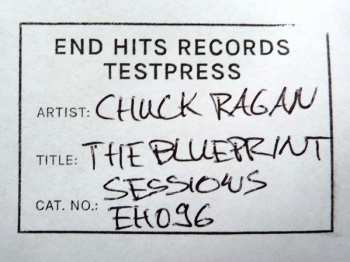 END HITS RECORDS
TESTPRESS
ARTIST: CHUCK RAGAN
TITLE: THE BLUEPRINT
SESSIONS
CAT. NO.: EH096